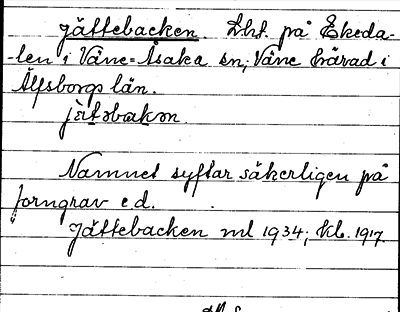 Jättebacken. Lht. på Ekeda-
-len i Väne-Åsaka sn, Väne härad i
Älfsborgs län.
Namnet syftar säkerligen på
forngrav e.d.
Jättebacken ml 1934; kb. 1917